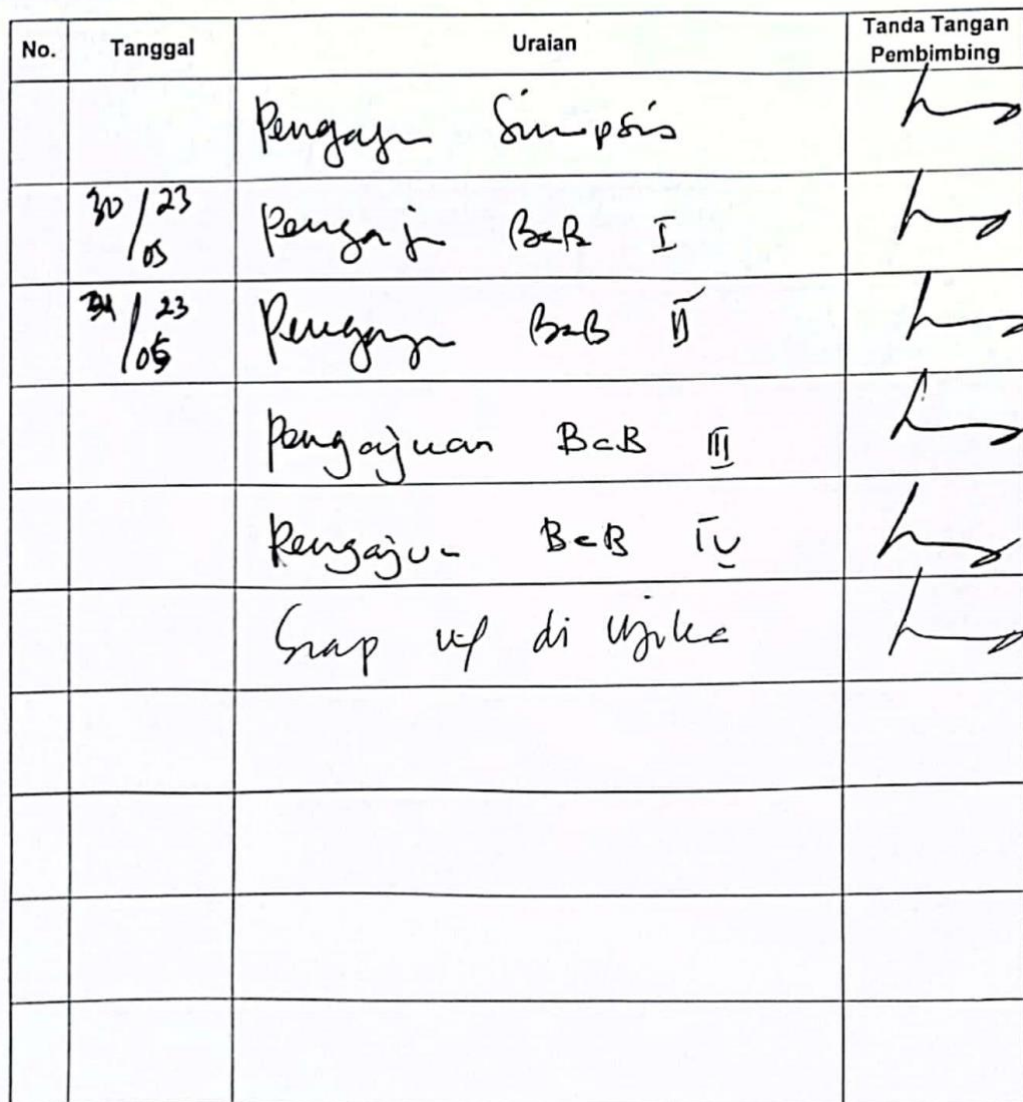 No. Tanggal Uraian Tanda Tangan Pembimbing
Pengajuan Sinopsis
30/23/05 Pengajuan BAB I
31/23/05 Pengajuan BAB II
Pengajuan BAB III
Pengajuan BAB IV
Siap di Ujika